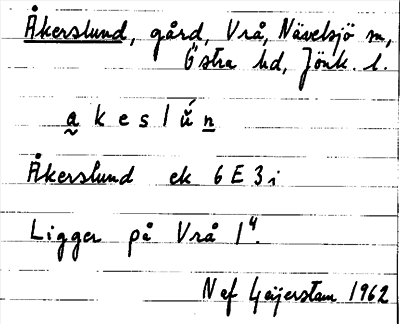 Åkerslund, gård, Vrå, Nävelsjö sn,
Östra hd, Jönk. l.
a k e s l ú n
Åkerslund ek 6 E 3 i
Ligger på Vrå 1⁴.
N af Geijerstam 1962